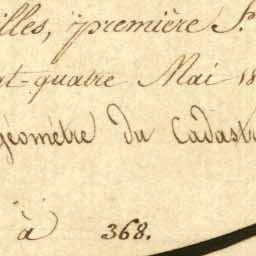 illes, première S.
gt-quatre Mai 18
géomètre du Cadastr
à 368.